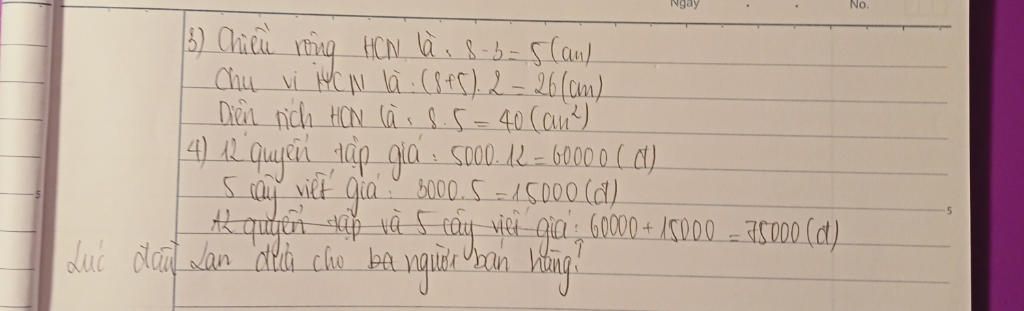 Ngày . . No.
3) Chiều rộng HCN là: 8-3=5(cm)
Chu vi HCN là: (8+5).2=26(cm)
Diện tích HCN là: 8.5=40(cm²)
4) 12 quyển tập giá: 5000.12=60000(đ)
5 cây viết giá: 3000.5=15000(đ)
12 quyển tập và 5 cây viết giá: 60000+15000=75000(đ)
Lúc đầu Lan đưa cho người bán hàng?